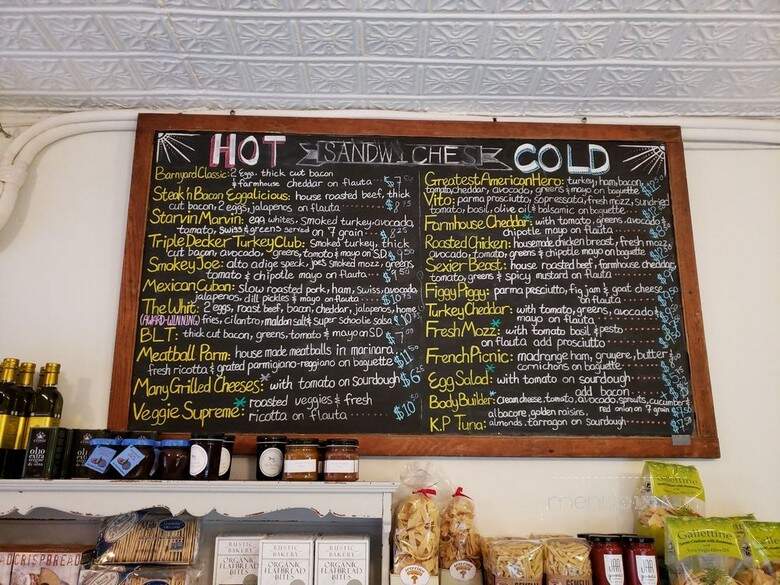 HOT SANDWICHES COLD
Barnyard Classic: 2 eggs, thick cut bacon
& farmhouse cheddar on flauta
Steak'n Bacon Eggalicious: house roasted beef, thick
cut bacon, 2 eggs, jalapenos on flauta
Starvin Marvin: egg whites, smoked turkey, avocado,
tomato, swiss & greens served on 7 grain
Triple Decker Turkey Club: smoked turkey, thick
cut bacon, avocado, greens, tomato & mayo on SD
Smokey Joe: alto adige speck, Joe's smoked mozz, greens,
tomato & chipotle mayo on flauta
Mexican Cuban: slow roasted pork, ham, swiss, avocado,
jalapenos, dill pickles & mayo on flauta
The Whit: 2 eggs, roast beef, bacon, cheddar, jalapenos, home
(AWARD-WINNING) fries, cilantro, maldon salt & super school's salsa
BLT: thick cut bacon, greens, tomato & mayo on SD
Meatball Parm: house made meatballs in marinara,
fresh ricotta & grated parmigiano-reggiano on baguette
Many Grilled Cheeses:* with tomato on sourdough
Veggie Supreme:* roasted veggies & fresh
ricotta on flauta $10
Greatest American Hero: turkey, ham, bacon,
tomato, cheddar, avocado, greens & mayo on baguette
Vito: parma prosciutto, sopressata, fresh mozz, sundried
tomato, basil, olive oil & balsamic on baguette
Farmhouse Cheddar:* with tomato, greens, avocado &
chipotle mayo on flauta
Roasted Chicken: housemade chicken breast, fresh mozz,
avocado, tomato, greens & chipotle mayo on baguette
Sexier Beast: house roasted beef, farmhouse cheddar,
tomato, greens & spicy mustard on flauta
Figgy Piggy: parma prosciutto, fig jam & goat cheese
on flauta
Turkey Cheddar: with tomato, greens, avocado &
mayo on flauta
Fresh Mozz:* with tomato basil & pesto
on flauta add prosciutto
French Picnic: madrange ham, gruyere, butter &
cornichons on baguette
Egg Salad:* with tomato on sourdough
add bacon
Body Builder:* cream cheese, tomato, avocado, sprouts, cucumber &
red onion on 7 grain
K.P Tuna: albacore, golden raisins,
almonds, tarragon on sourdough
CRISPBREAD
RUSTIC BAKERY
ORGANIC FLATBREAD BITES
RUSTIC BAKERY
ORGANIC FLATBREAD BITES
RUSTIC BAKERY
ORGANIC FLATBREAD BITES
GEMELLI
Galettine
Galettine